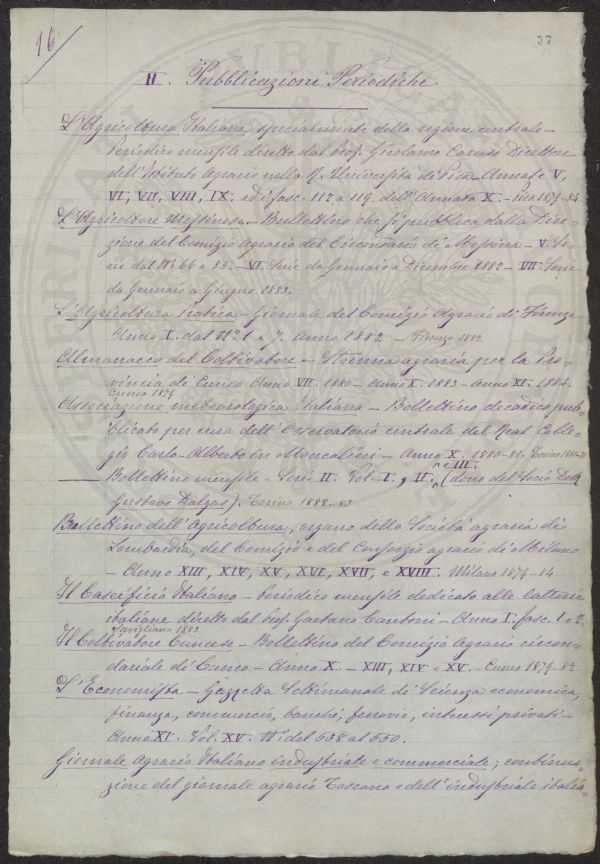 16
37
II. Pubblicazioni Periodiche
L'Agricoltura Italiana specialmente della regione centrale –
Periodico mensile diretto dal Prof. Girolamo Caruso Direttore
dell'Istituto Agrario nella R. Università di Pisa – Annate V,
VI, VII, VIII, IX. ed i fasc. 117 a 119. dell'Annata X. – Pisa 1879-84
L'Agricoltore Messinese – Bullettino che si pubblica dalla Dire=
zione del Comizio Agrario del Circondario di Messina – V. Se=
rie dal N. 66 a 85. – VI Serie da Gennaio a Dicembre 1882 – VII Serie
da Gennaio a Giugno 1883.
L'Agricoltura Pratica – Giornale del Comizio Agrario di Firenze
Anno I. dal N. 1 a 7. Anno 1882 – Firenze 1882
Almanacco del Coltivatore – Strenna agraria per la Pro=
vincia di Cuneo Anno VII. 1880 – Anno X. 1883 – Anno XI. 1884.
Cuneo 1879
Associazione meteorologica Italiana – Bollettino decadico pub=
blicato per cura dell'Osservatorio centrale del Real Colle=
gio Carlo-Alberto in Moncalieri – Anno X. 1880-81. Torino
– Bollettino mensile – Serie II. Vol. I, II. e III. (dono del Socio Dott.
Gustavo Dalgas). Torino 1882-83
Bullettino dell'Agricoltura, organo della Società agraria di
Lombardia, del Comizio e del Consorzio agrario di Milano
– Anno XIII, XIV, XV, XVI, XVII, e XVIII. Milano 1879-84
Il Caseificio Italiano – Periodico mensile dedicato alle latterie
italiane diretto dal Prof. Gaetano Cantoni – Anno I. fasc. 1 e 2.
Savigliano 1883
Il Coltivatore Cuneese – Bollettino del Comizio Agrario circon=
dariale di Cuneo – Anno X. – XIII, XIV e XV. – Cuneo 1879-82
L'Economista – Gazzetta Settimanale di Scienza economica,
finanza, commercio, banchi, ferrovie, interessi privati –
Anno XI. Vol. XV. N. dal 538 al 550.
Giornale Agrario Italiano industriale e commerciale; continua=
zione del giornale agrario Toscano e dell'industriale italia=